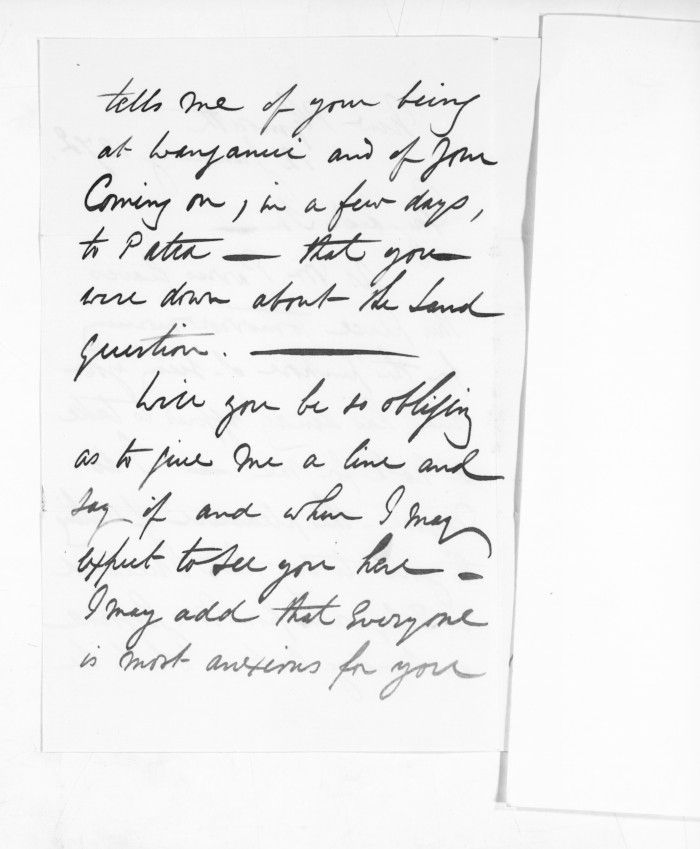 tells me of your being
at Wanganui and of your
Coming on, in a few days,
to Patea — that you
were down about the Land
question. —
Will you be so obliging
as to give me a line and
say if and when I may
expect to see you here —
I may add that Everyone
is most anxious for you